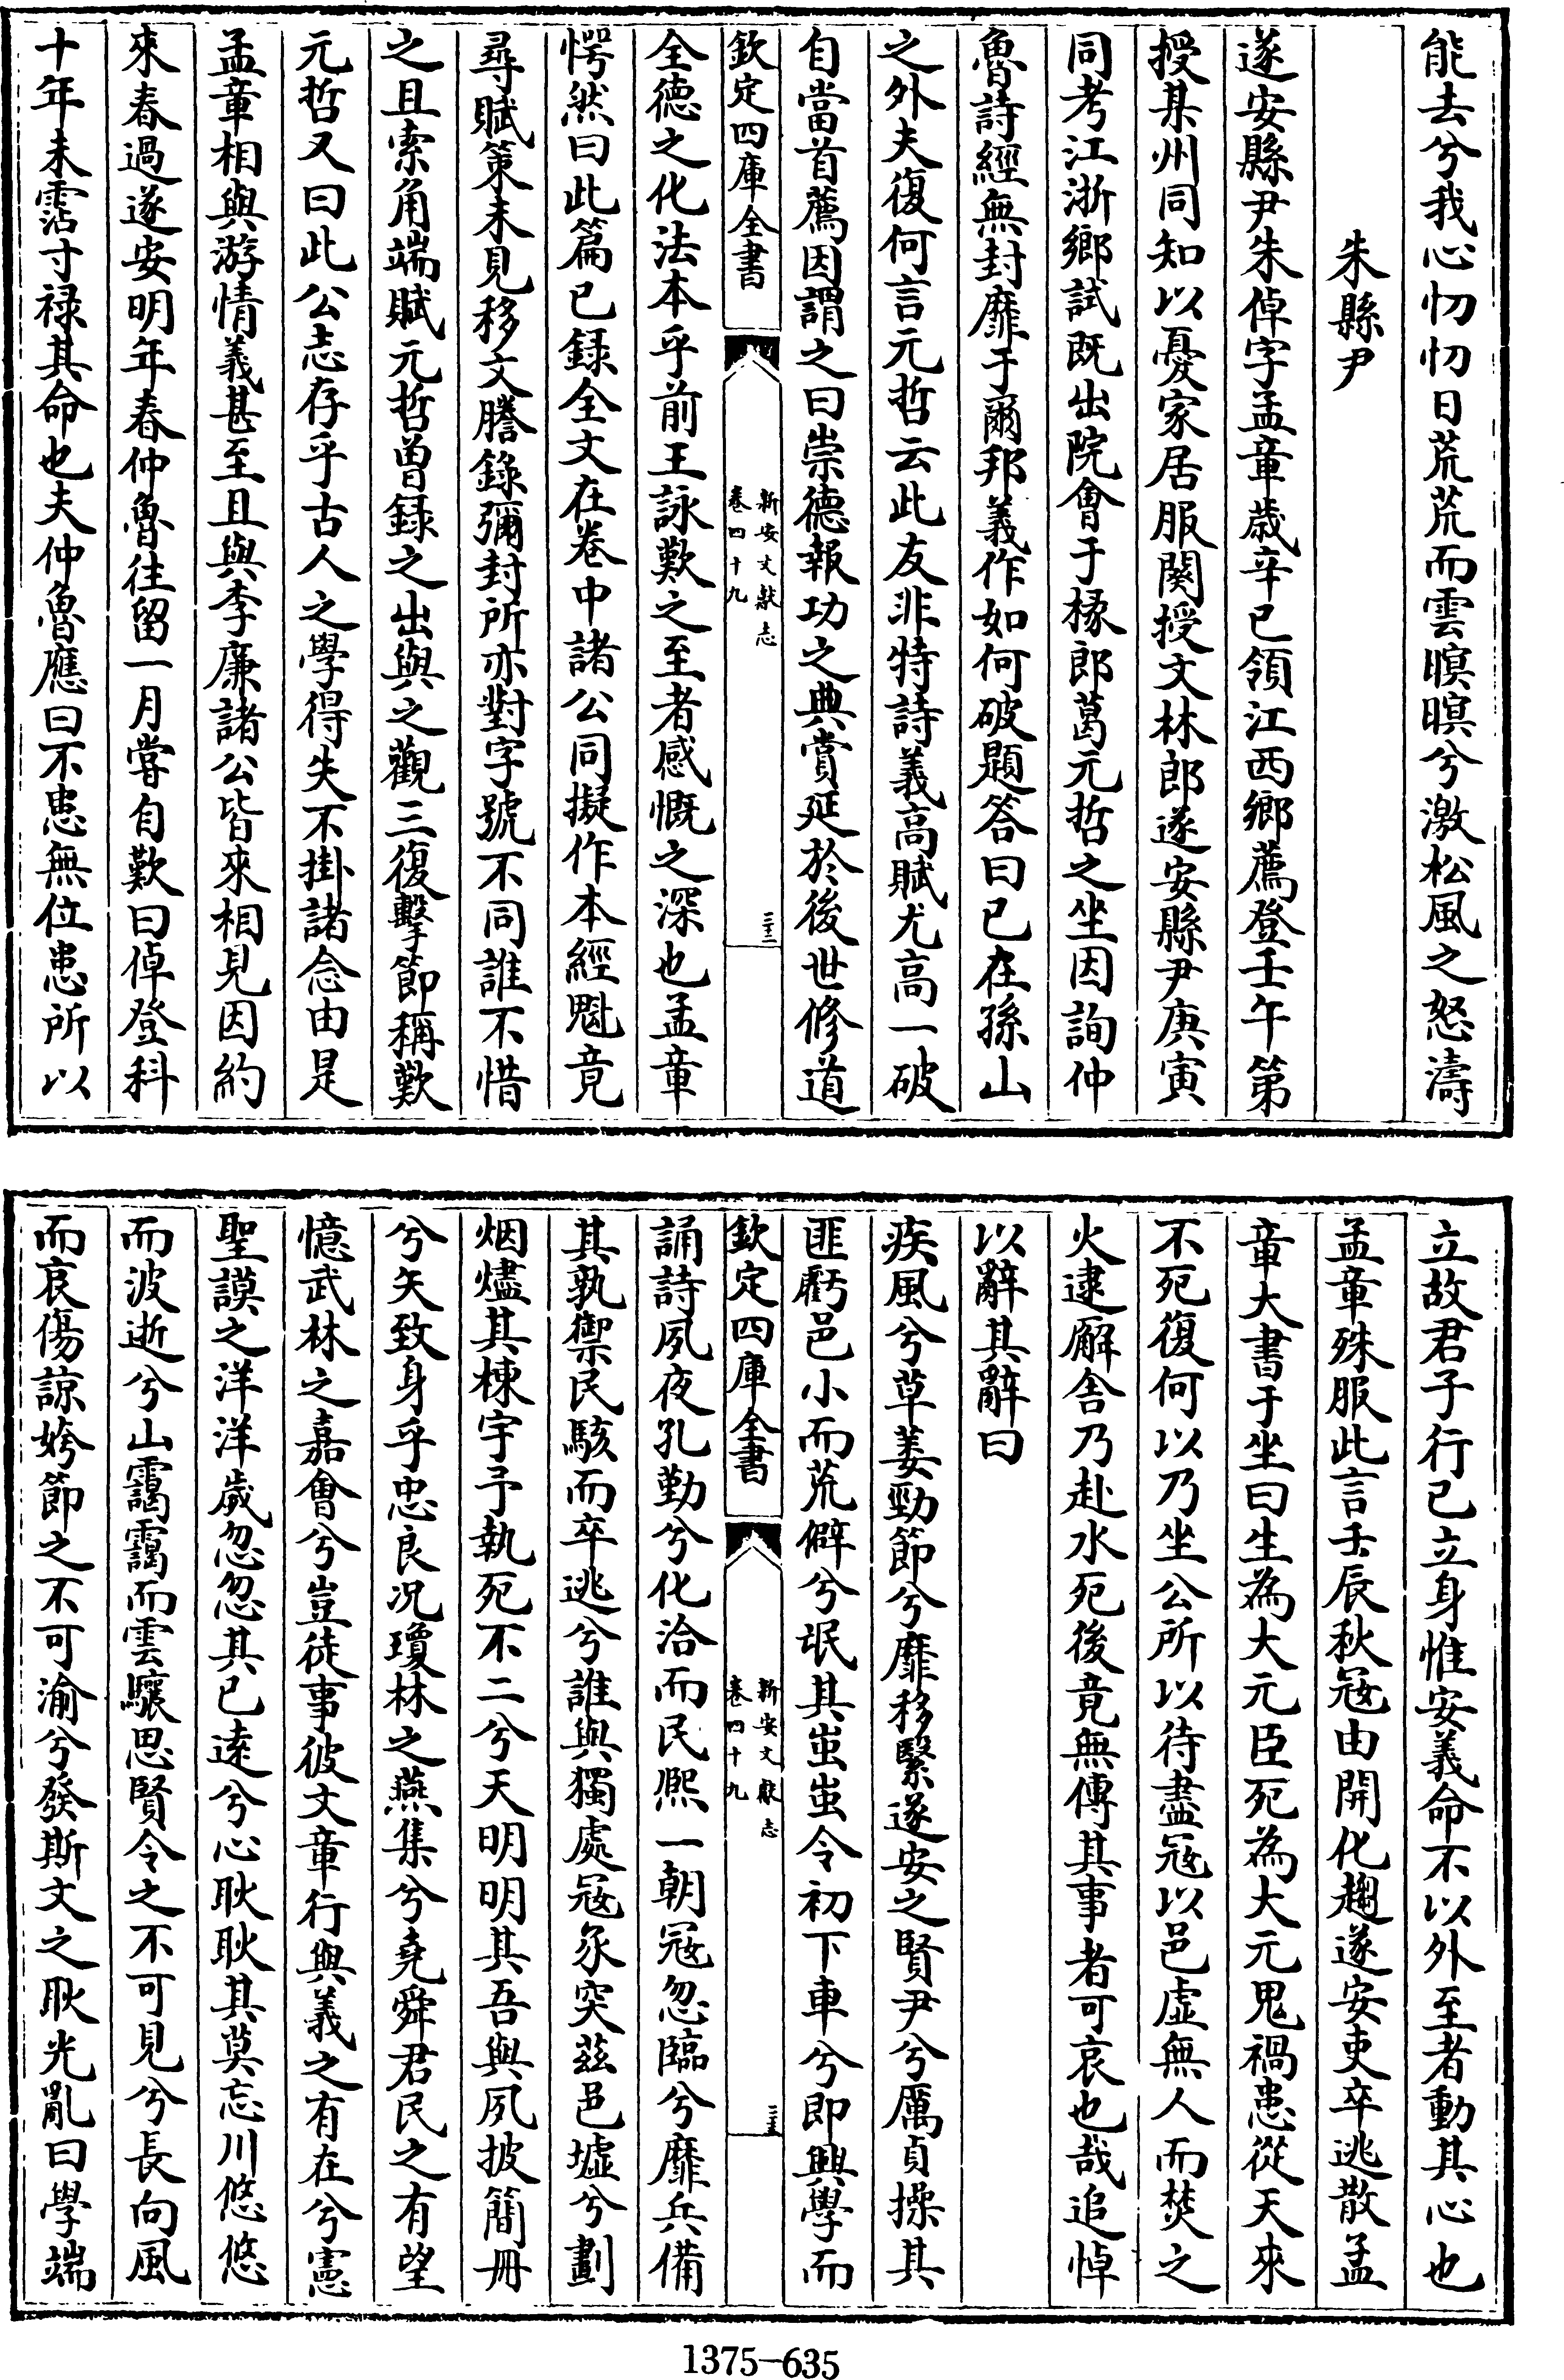 能去兮我心忉忉日荒荒而雲暝暝兮激松風之怒濤
朱縣尹
遂安縣尹朱倬字孟章歲辛巳領江西鄉薦登壬午第
授某州同知以憂家居服闋授文林郎遂安縣尹庚寅
同考江浙鄉試既出院會于椽郎葛元哲之坐因詢仲
魯詩經無封靡于爾邦義作如何破題答曰已在孫山
之外夫復何言元哲云此友非特詩義高賦尤高一破
自當首薦因謂之曰崇德報功之典賞延於後世修道
欽定四庫全書
新安文獻志
卷四十九
三十二
全德之化法本乎前王詠歎之至者感慨之深也孟章
愕然曰此篇已録全文在卷中諸公同擬作本經魁竟
尋賦策未見移文謄錄彌封所亦對字號不同誰不惜
之且索角端賦元哲曽録之出與之觀三復擊節稱歎
元哲又曰此公志存乎古人之學得失不掛諸念由是
孟章相與游情義甚至且與李廉諸公皆來相見因約
來春過遂安明年春仲魯往留一月嘗自歎曰倬登科
十年未霑寸禄其命也夫仲魯應曰不患無位患所以
立故君子行已立身惟安義命不以外至者動其心也
孟章殊服此言壬辰秋冦由開化趨遂安吏卒逃散孟
章大書于坐曰生為大元臣死為大元鬼禍患從天來
不死復何以乃坐公所以待盡冦以邑虚無人而焚之
火逮廨舎乃赴水死後竟無傳其事者可哀也哉追悼
以辭其辭曰
疾風兮草萎勁節兮靡移緊遂安之賢尹兮厲貞操其
匪虧邑小而荒僻兮氓其蚩蚩令初下車兮即興學而
欽定四庫全書
新安文獻志
卷四十九
三十三
誦詩夙夜孔勤兮化洽而民熈一朝冦忽臨兮靡兵備
其孰禦民駭而卒逃兮誰與獨處冦豕突茲邑墟兮劃
烟燼其棟宇予執死不二兮天明明其吾與夙披簡冊
兮矢致身乎忠良况瓊林之燕集兮堯舜君民之有望
憶武林之嘉會兮豈徒事彼文章行與義之有在兮憲
聖謨之洋洋歲忽忽其已逺兮心耿耿其莫忘川悠悠
而波逝兮山靄靄而雲驤思賢令之不可見兮長向風
而哀傷諒姱節之不可渝兮發斯文之耿光亂曰學端
1375-635